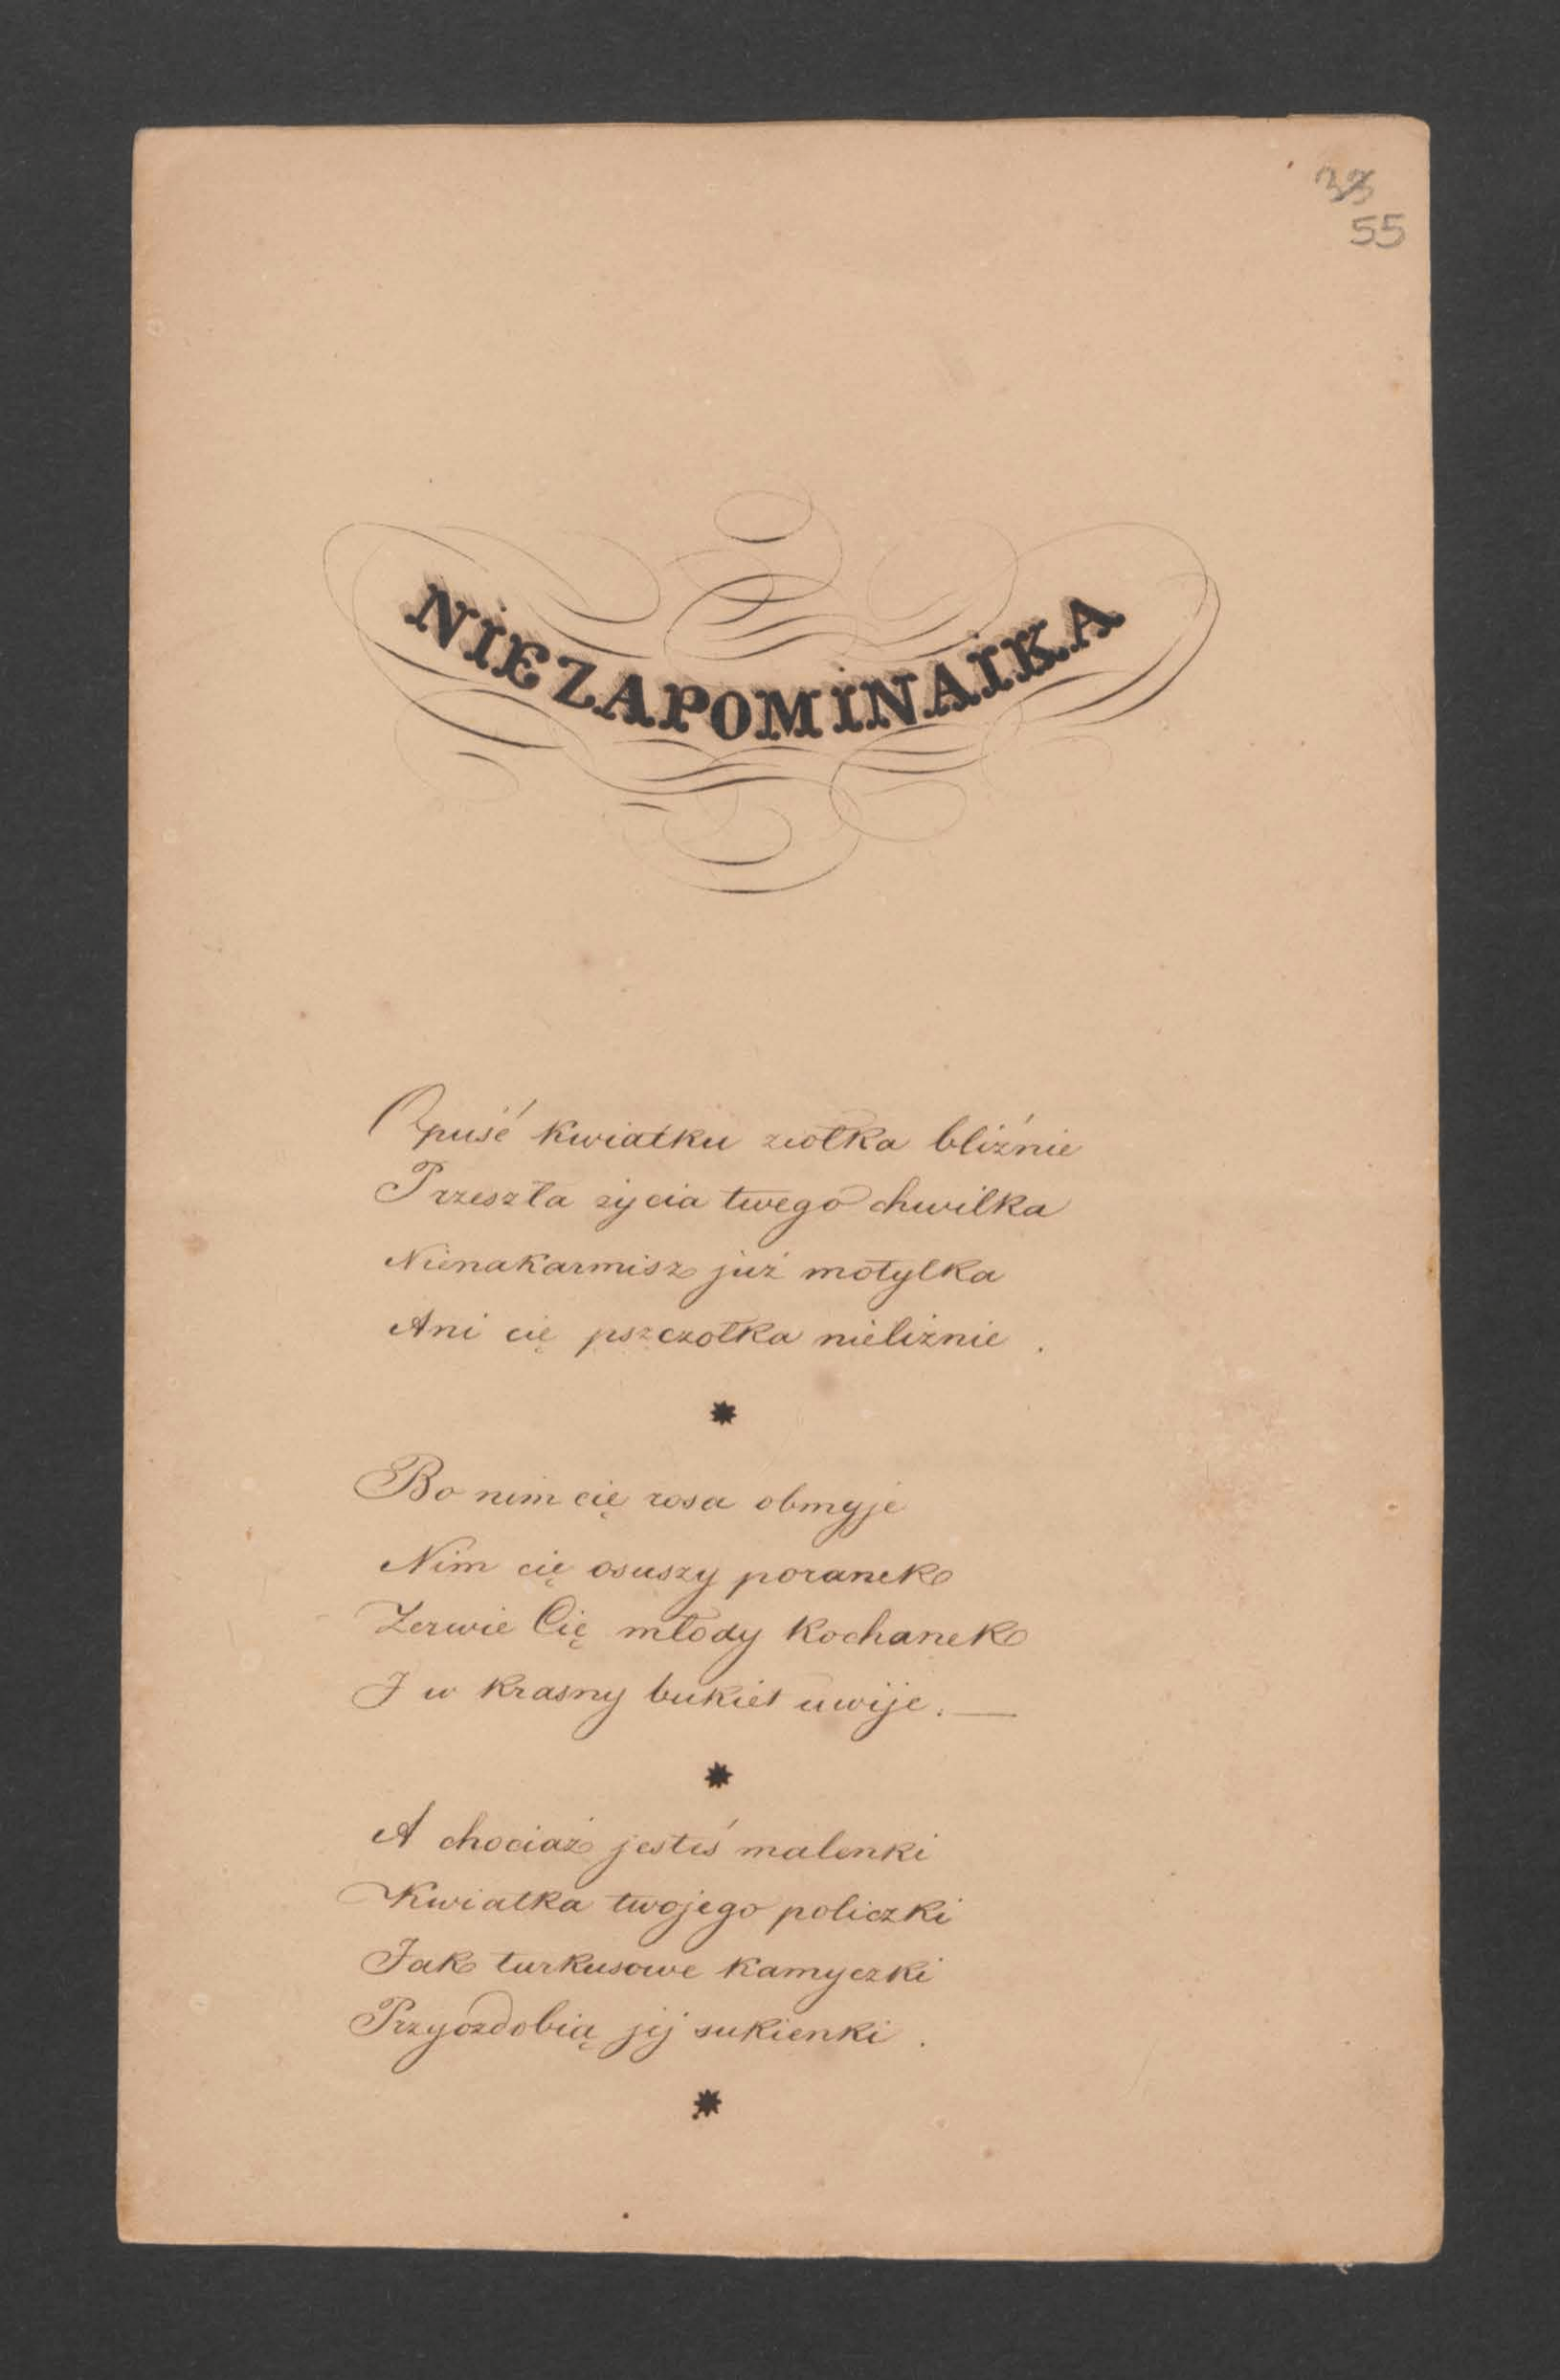 33
55
NIEZAPOMINAIKA
Opuść kwiatku ziołka bliźnie
Przeszła życia twego chwilka
Nienakarmisz już motylka
Ani cię pszczołka nieliźnie .
*
Bo nim cię rosa obmyje
Nim cię osuszy poranek
Zerwie Cię młody kochanek
I w krasny bukiet uwije . —
*
A chociaż jesteś malenki
Kwiatka twojego policzki
Jak turkusowe kamyczki
Przyozdobią jej sukienki .
*